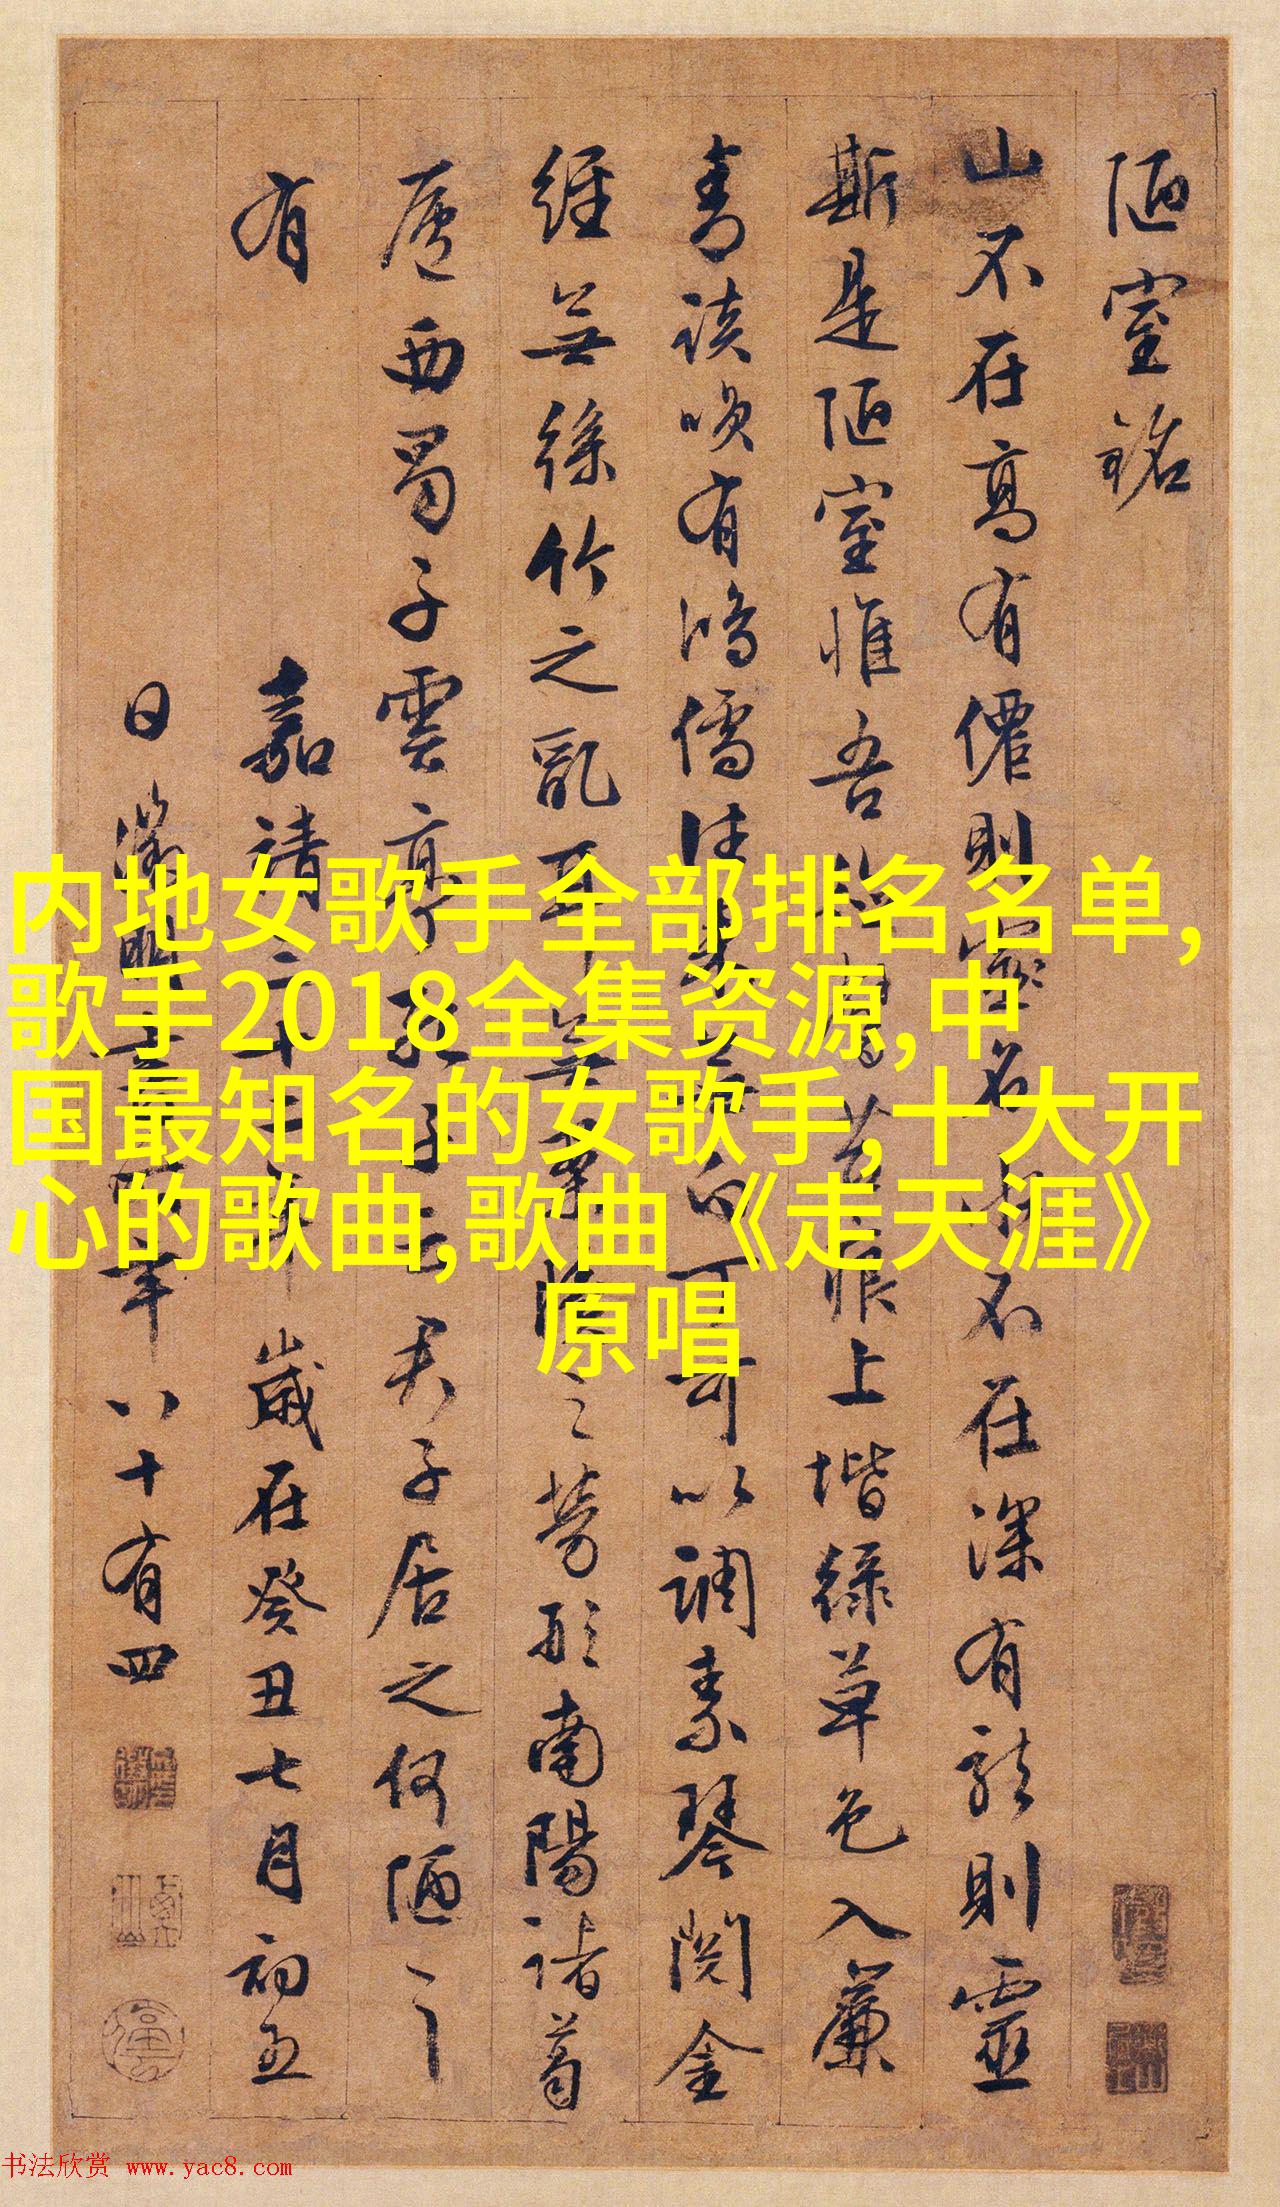 陋室銘
山不在高有僊則靈名水不在深有龍則靈
斯是陋室惟吾德馨苔痕上堦綠草色入簾
青談咲有鴻儒往來無白丁可以調素琴閱金
經無絲竹之亂耳無案牘之勞形南陽諸葛
廬西蜀子雲亭孔子云君子居之何陋之
有 嘉靖三十二年歲在癸丑七月初五
日 徵明書時年八十有四
内地女歌手全部排名名单,
歌手2018全集资源,中
国最知名的女歌手,十大开
心的歌曲,歌曲《走天涯》
原唱
书法欣赏 www.yac8.com